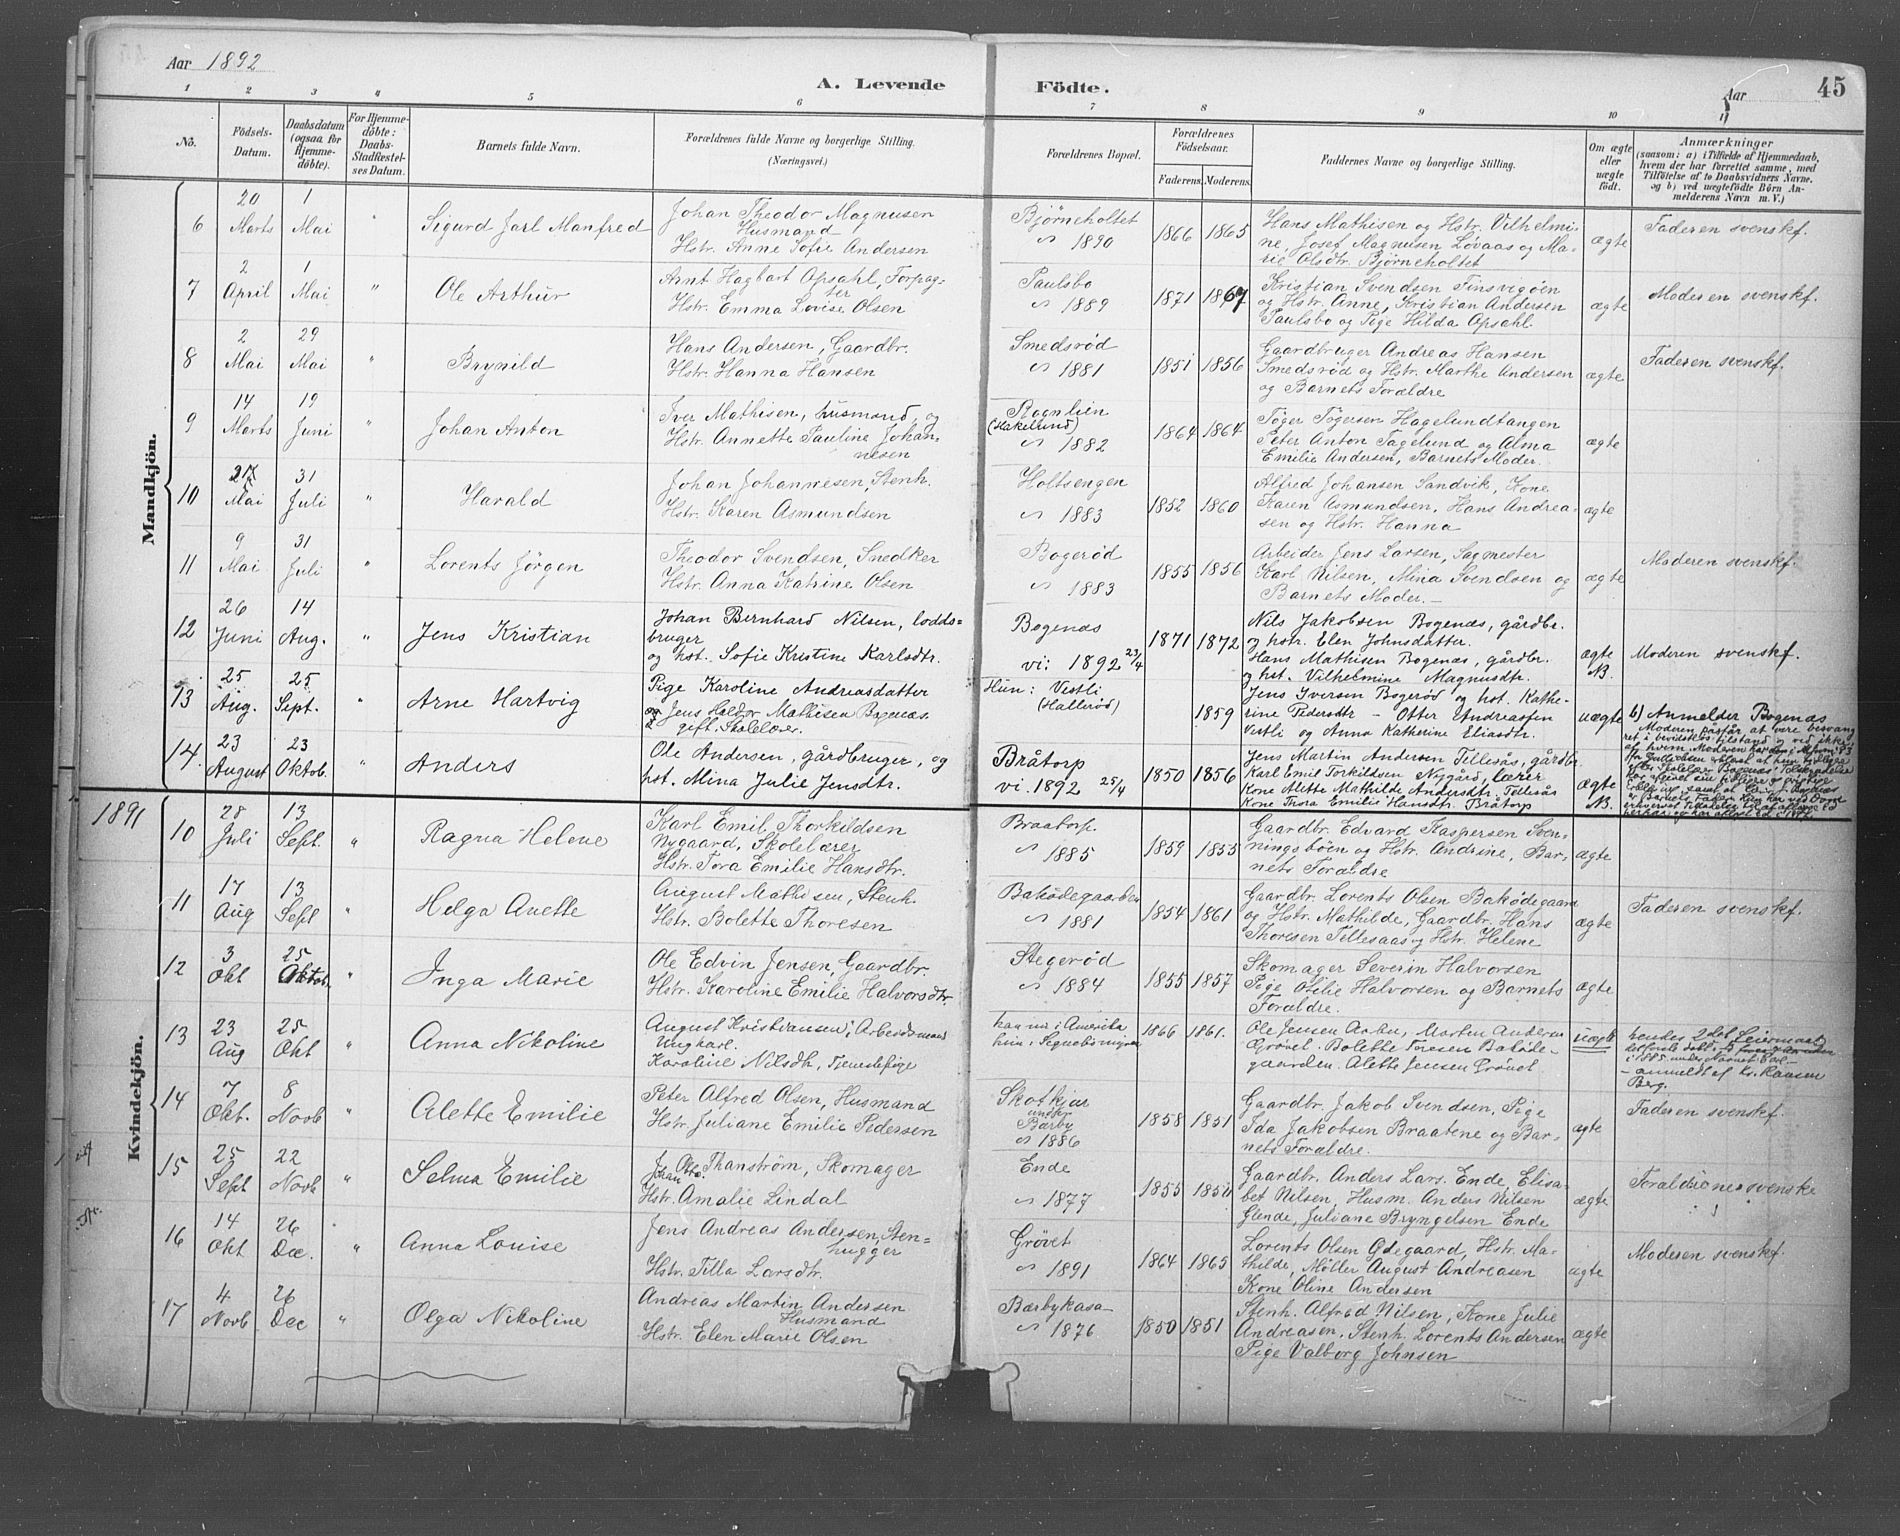 Aar 1892
A. Levende Födte.
Aar
45
1 2 3 4 5 6 7 8 9 10 11
No.
Födsels-Datum.
Daabsdatum (ogsaa for Hjemmedöbte).
For Hjemmedöbte: Daabs-Stadfæstelses Datum.
Barnets fulde Navn.
Forældrenes fulde Navne og borgerlige Stilling.
(Næringsvei.)
Forældrenes Bopæl.
Forældrenes Födselsaar.
Faderens. Moderens.
Faddernes Navne og borgerlige Stilling.
Om ægte eller uægte födt.
Anmærkninger
(saasom: a) i Tilfælde af Hjemmedaab,
hvem der har forrettet samme, med
Tilföielse af to Daabsvidners Navne,
og b) ved uægtefödte Börn Anmelderens Navn m. V.)
Mandkjön.
6 20 Marts 1 Mai " Sigurd Jarl Manfred
Johan Theodor Magnusen
Husmand
Hstr. Anne Sofie Andersen
Bjørneholtet
1890
1866 1865
Hans Mathisen og Hstr. Vilhelmi-
ne, Josef Magnusen Lovaas og Ma-
rie Olsdtr. Bjørneholtet
ægte
Faderen svenskf.
7 2 April 1 Mai " Ole Arthur
Arnt Hagbart Opsahl, Forpag-
ter
Hstr. Emma Lovise Olsen
Paulsbo
1889
1871 1867
Kristian Svendsen Finsvigöen
og Hstr. Anne, Kristian Andersen
Paulsbo og Pige Hilda Opsahl.
ægte
Moderen svenskf.
8 2 Mai 29 Mai " Brynild
Hans Andersen, Gaardbr.
Hstr. Hanna Hansen
Smedsrød
1881
1851 1856
Gaardbruger Andreas Hansen
Smedsrød og Hstr. Marthe Andersen
og Barnets Forældre
ægte
Faderen svenskf.
9 14 Marts 19 Juni " Johan Anton
Iver Mathisen, husmand, og
Hstr. Annette Pauline Johan-
nesen
Rognlien
(Hakelund)
1882
1864 1864
Töger Tögersen Hagelundtangen
Peter Anton Tagelund og Alma
Emilie Andersen, Barnets Moder.
ægte
10 Mai 31 Juli " Harald
Johan Johannesen, Stenh.
Hstr. Karen Asmundsen
Holtsengen
1883
1852 1860
Alfred Johansen Sandvik, Kone
Karen Asmundsen, Hans Andrea-
sen og Hstr. Hanna
ægte
11 9 Mai 31 Juli " Lorents Jörgen
Theodor Svendsen, Snedker
Hstr. Anna Katrine Olsen
Bogerød
1883
1855 1856
Arbeider Jens Larsen, Sagmester
Karl Nilsen, Mina Svendsen og
Barnets Moder.
ægte
Moderen svenskf.
12 26 Juni 14 Aug. " Jens Kristian
Johan Bernhard Nilsen, lodds-
bruger
og hst. Sofie Kristine Karlsdtr.
Bogenæs
vi: 1892 23/4
1871 1872
Nils Jakobsen Bogenæs, gårdbr.
og hstr. Elen Johnsdatter.
Hans Mathisen Bogenæs, gårdbr.
og hst. Vilhelmine Magnusdtr.
ægte
N.
Moderen svenskf.
13 25 Aug. 25 Sept. " Arne Hartvig
Pige Karoline Andreasdatter
og Jens Haldor Mathisen Bogenæs.
gift, Skolelærer.
Hun: Vestli
(Hallerød)
1859
Jens Iversen Bogerød og hst. Kathe-
rine Pedersdtr - Otter Andreassen
Vestli og Anna Katherine Eliasdtr.
uægte
b) Anmelder Bogenæs
Moderen påstår at være besvang
ret i bevidstløs tilstand og ved ikke
af hvem.
14. 23 August 23 Oktob. " Anders
Ole Andersen, gårdbruger, og
hst. Mina Julie Jensdtr.
Bråtorp
vi. 1892 25/4
1850 1856
Jens Martin Andersen Tillesås, gårdbr.
Karl Emil Torkildsen Nygård, lærer
Kone Alette Mathilde Andersdtr. Tillesås
Kone Thora Emilie Hansdtr. Bråtorp
ægte
N.
1891
Kvindekjön.
10 28 Juli 13 Sept. " Ragna Helene
Karl Emil Thorkildsen
Nygaard, Skolelærer
Hstr. Tora Emilie Hansdtr.
Braatorp.
1885
1859 1855
Gaardbr. Edvard Kaspersen Sven-
ningsbøen og Hstr. Andrine, Bar-
nets Forældre
ægte
11 17 Aug 13 Sept " Helga Anette
August Mathisen, Stenh.
Hstr. Bolette Thoresen
Bakødegaarden
1881
1854 1861
Gaardbr. Lorents Olsen Bakødegaard
og Hstr. Mathilde, Gaardbr. Hans
Thoresen Tillesaas og Hstr. Helene
ægte
Faderen svenskf.
12 3 Okt 25 Oktob. " Inga Marie
Ole Edvin Jensen, Gaardbr.
Hstr. Karoline Emilie Halvorsdtr.
Stegerød
1884
1855 1857
Skomager Severin Halvorsen
Pige Otilie Halvorsen og Barnets
Forældre.
ægte
13 23 Aug 25 Okt " Anna Nikoline
August Kristiansen, Arbeidsmand
Ungkarl.
Karoline Nilsdtr, Tjenestepige
han nu i Amerika
hun: Signebømyren
1866 1861.
Ole Jensen Aarbu, Martin Andersen
Grövet. Bolette Toresen Baköde-
gaarden. Alette Jensen Grövet
uægte
hendes 2det Leiermaal
i 1885 under Navnet
- anmeldt af Kr. Hansen
Berg.
14 7 Okt. 8 Novb " Alette Emilie
Peter Alfred Olsen, Husmand
Hstr. Juliane Emilie Pedersen
Skotkjær
under
Bærby
1886
1858 1851
Gaardbr. Jakob Svendsen, Pige
Ida Jakobsen Braatene og Bar-
nets Forældre.
ægte
Faderen svenskf.
15 25 Sept 22 Novb " Selma Emilie
Johan Otto Thanström, Skomager
Hstr. Amalie Lindal
Ende
1877
1855 1854
Gaardbr. Anders Lars. Ende, Elisa-
bet Nilsen, Husm. Anders Nilsen
Glende, Juliane Bryngelsen Ende
ægte
Forældrene svenske
16 14 Okt 26 Dec. " Anna Louise
Jens Andreas Andersen, Sten-
hugger
Hstr. Tilla Larsdtr.
Grövet
1891
1864 1865
Lorents Olsen Ødegaard, Hstr. Ma-
thilde, Möller August Andreasen
Kone Oline Andersen
ægte
Moderen svenskf.
17 4 Novb 26 Dec " Olga Nikoline
Andreas Martin Andersen
Husmand
Hstr. Elen Marie Olsen
Bærbykasa
1876
1850 1851
Stenh. Alfred Nilsen, Kone Julie
Andreasen, Stenh. Lorents Andersen
Pige Valborg Johnsen
ægte